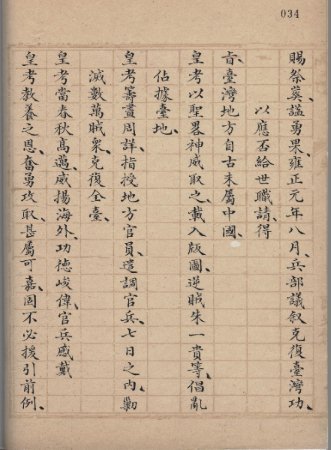 034
賜祭葬、諡勇果、雍正元年八月、兵部議敘克復臺灣功、
以應否給世職請、得
旨、臺灣地方自古未屬中國、
皇考以聖畧神威取之、載入版圖、逆賊朱一貴等、倡亂
佔據臺地、
皇考籌畫周詳、指授地方官員、遣調官兵、七日之內、勦
滅數萬賊衆、克復全臺、
皇考當春秋高邁、威揚海外、功德峻偉、官兵感戴
皇考教養之恩、奮勇攻取、甚屬可嘉、因不必援引前例、